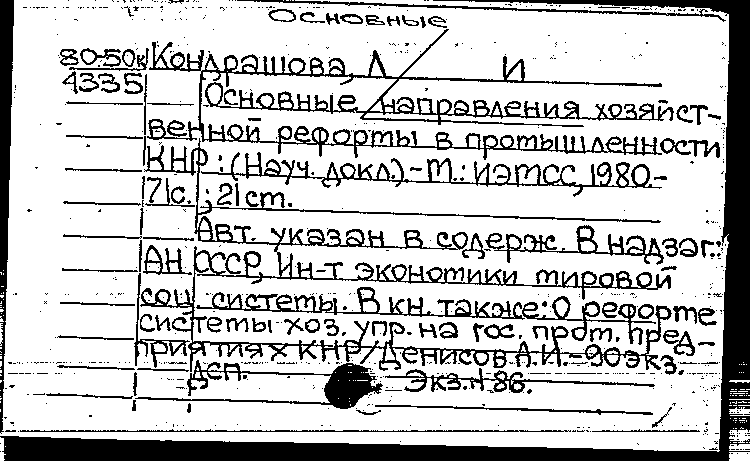 Основные
80-50к Кондрашова, Л И
4335 Основные направления хозяйст-
венной реформы в промышленности
КНР : (Науч. докл.).-М.: ИЭМСС, 1980.-
71с. ; 21см.
Авт. указан в содерж. В надзаг.:
АН СССР, Ин-т экономики мировой
соц. системы. В кн. также: О реформе
системы хоз. упр. на гос. пром. пред-
приятиях КНР/Денисов А.И.-90экз.
ДСП. Экз.N 86.